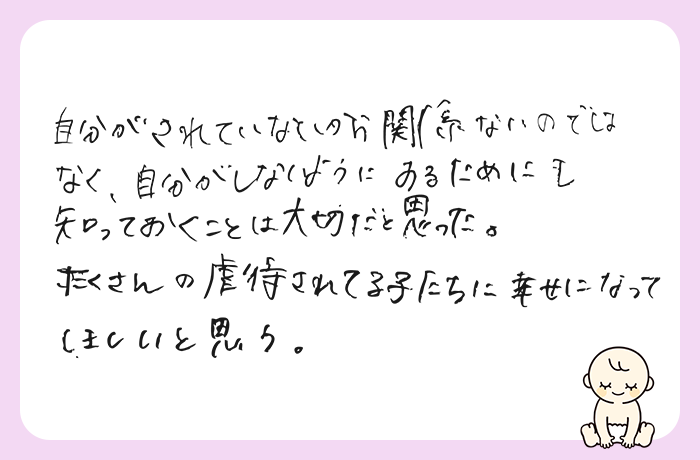 自分がされていないから関係ないのでは
なく、自分がしないようにあるためにも
知っておくことは大切だと思った。
たくさんの虐待されてる子たちに幸せになって
ほしいと思う。